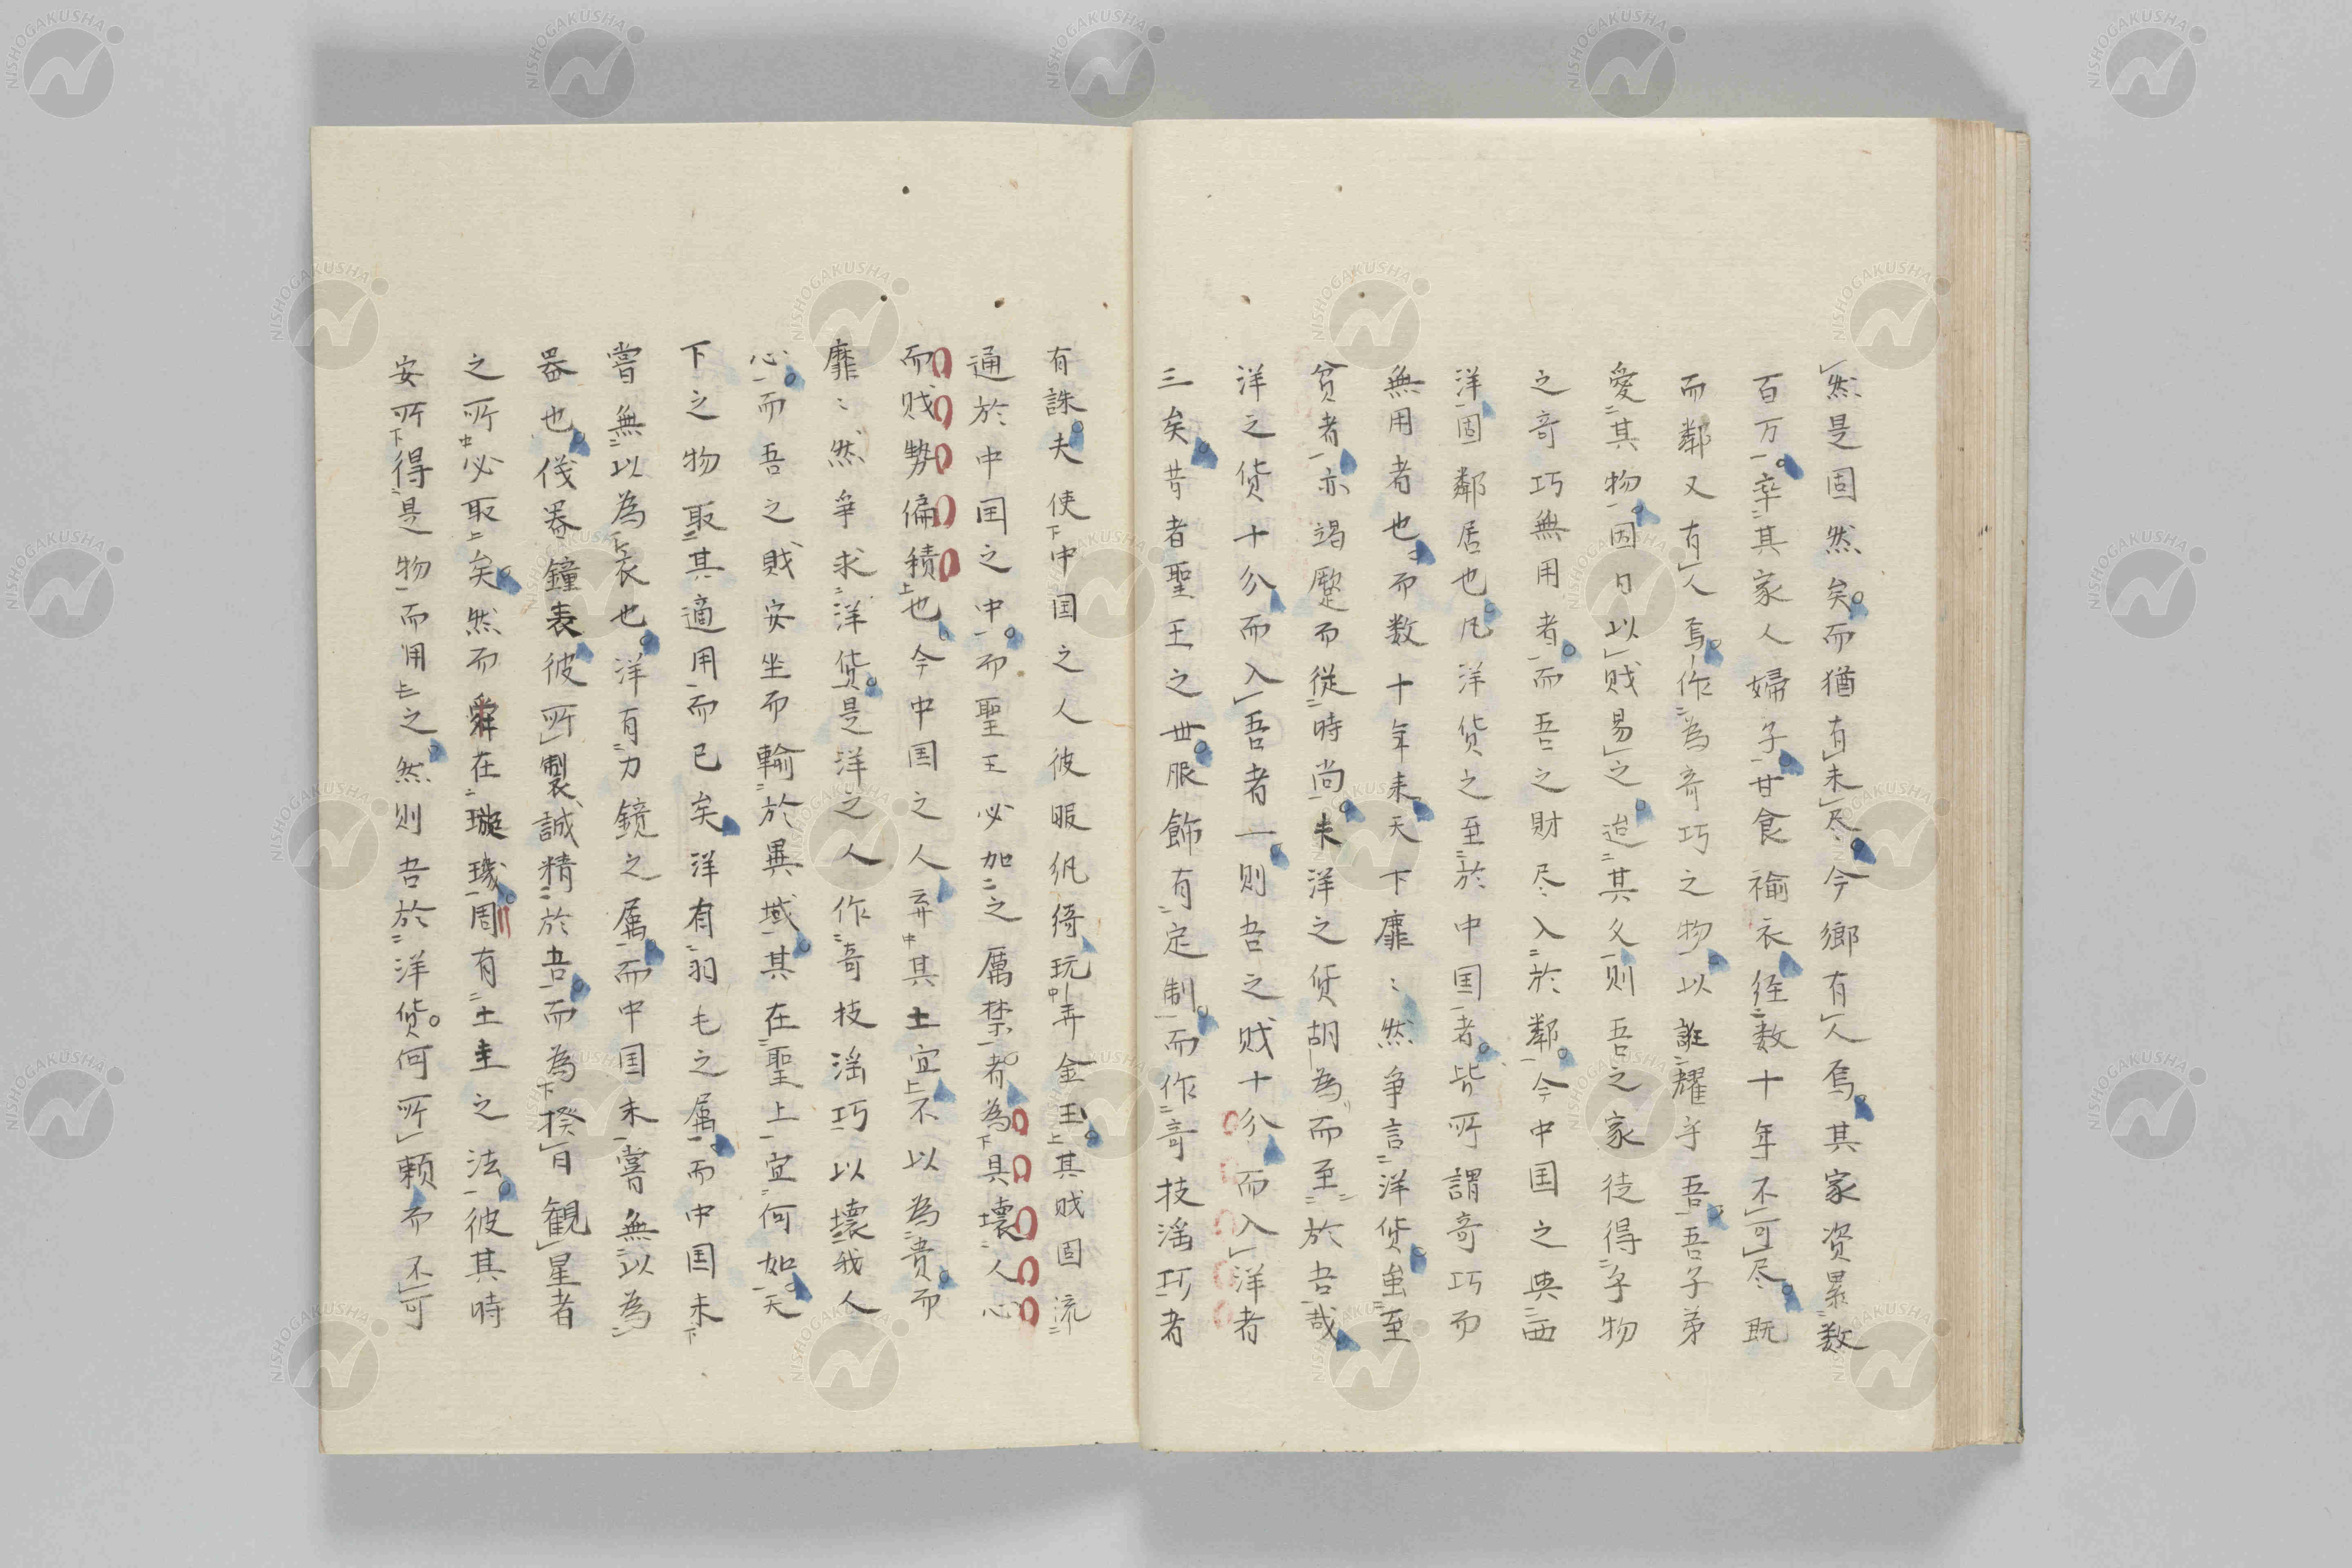 然是固然矣而猶有未尽今鄉有人焉其家資累数
百万率其家人婦子甘食褕衣経数十年不可尽既
而鄰又有人焉作為奇巧之物以誑耀乎吾吾子弟
愛其物因日以賎易之迨其久則吾之家徒得乎物
之奇巧無用者而吾之財尽入於鄰今中国之與西
洋固鄰居也凡洋货之至於中国者皆所謂奇巧而
無用者也而数十年来天下靡〻然争言洋货虽至
貧者亦竭蹷而從時尚未洋之货胡為而至於吾哉
洋之货十分而入吾者一則吾之賎十分而入洋者
三矣昔者聖王之世服飾有定制而作奇技滛巧者
有誅夫使中国之人彼服紈綺玩弄金玉其賎固流
通於中国之中而聖王必加之厲禁者為具壊人心
而賎勢偏積也今中国之人弃其土宜不以為貴而
靡〻然争求洋货是洋之人作奇技滛巧以壊我人
心而吾之賎安坐而輸於異域其在聖上宜何如天
下之物取其適用而已矣洋有羽毛之属而中国未
嘗無以為衣也洋有刀鏡之属而中国未嘗無以為
器也儀器鐘表彼所製誠精於吾而為揆日観星者
之所必取矣然而舜在璇璣周有土圭之法彼其時
安所得是物而用之然則吾於洋货何所頼而不可
NISHOGAKUSHA